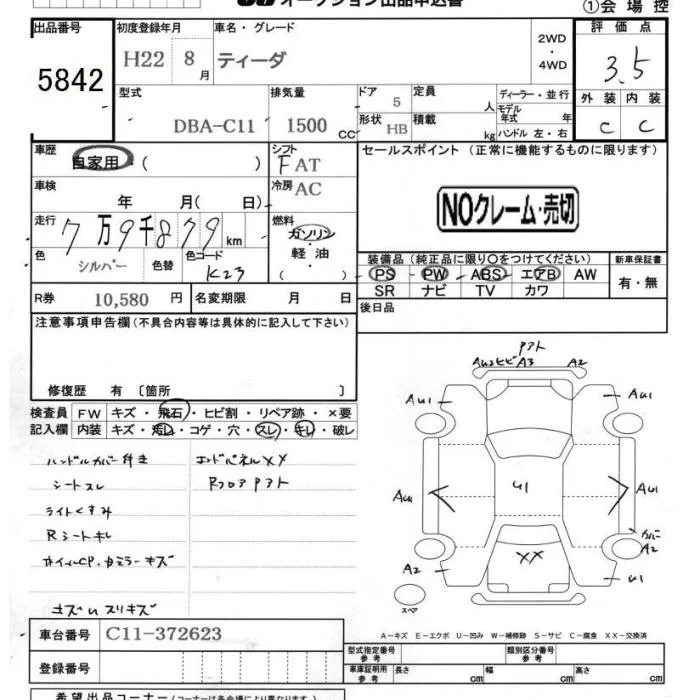 オークション出品申込書
①会場控
出品番号 初度登録年月 車名・グレード 2WD・4WD 評価点
5842 H22 8月 ティーダ 3.5
型式 排気量 ドア 5 定員 人 ディーラー・並行 外装 内装
DBA-C11 1500CC 形状 HB 積載 kg モデル年式 年 ハンドル 左・右 C C
車歴 自家用・( ) シフト FAT セールスポイント (正常に機能するものに限ります)
車検 年 月( 日) 冷房 AC
NOクレーム・売切
走行 7万9千879km 燃料 ガソリン・軽油 ( )
色 シルバー 色替 色コード K23
装備品 (純正品に限り○をつけてください) 新車保証書
PS PW ABS エアB AW 有・無
SR ナビ TV カワ
R券 10,580円 名変期限 月 日 後日品
注意事項申告欄 (不具合内容等は具体的に記入して下さい)
修復歴 有 〔箇所 〕
検査員 FW キズ・飛石・ヒビ割・リペア跡・×要
記入欄 内装 キズ・汚レ・コゲ・穴・スレ・キレ・破レ
ハンドルカバー付き
エンドパネルXX
シートスレ
Rフロアアト
ライトくすみ
Rシートキレ
ホイルCP.ミラーキズ
キズUスリキズ
アト
ヒビ A3 A2
AU1 AU1
AU1 U1 AU1
カバー
A2 XX A2
U1
スペア
A-キズ E-エクボ U-凹み W-補修跡 S-サビ C-腐食 XX-交換済
車台番号 C11-372623
登録番号
型式指定番号 参考 類別区分番号 参考
車庫証明用 参考 長さ cm 幅 cm 高さ cm
希望出品コーナー (コーナーは各会場により異なります)